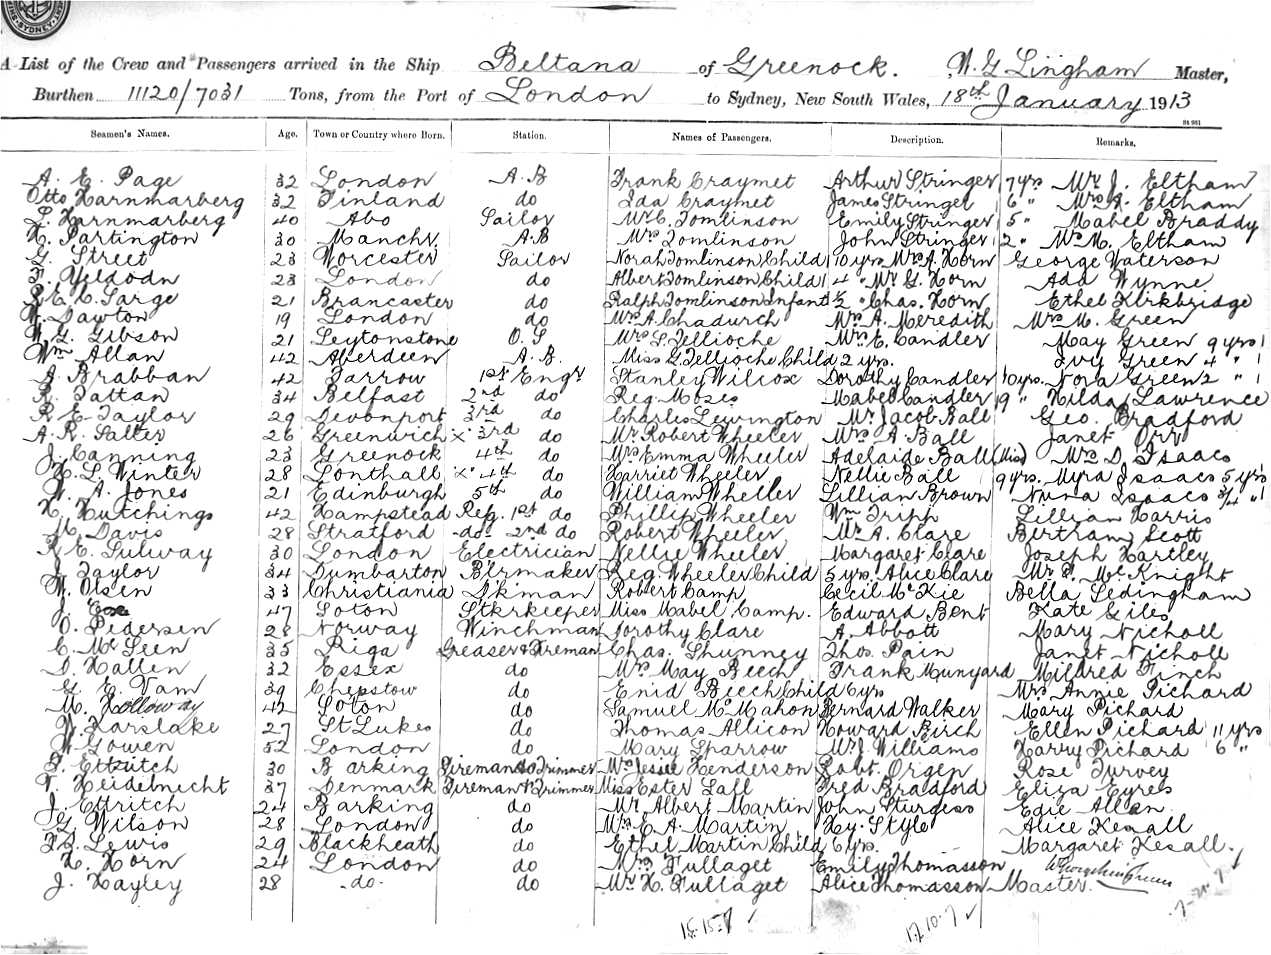 SYDNEY
A List of the Crew and Passengers arrived in the Ship Beltana of Greenock. W. G Lingham Master,
Burthen 11120/7031 Tons, from the Port of London to Sydney, New South Wales, 18th January 1913
St 981
Seamen's Names. Age. Town or Country where Born. Station. Names of Passengers. Description. Remarks.
A. E. Page 32 London A.B Frank Craymet Arthur Stringer 7 yrs Mr J. Eltham
Otto Harnmarberg 32 Finland do Ida Craymet James Stringer 6 " Mrs A. Eltham
L. Harnmarberg 40 Abo Sailor Mr C. Tomlinson Emily Stringer 5 " Mabel Braddy
H. Partington 30 Manchr. A.B Mrs Tomlinson John Stringer 2 " Ms. H. Eltham
G. Street 23 Worcester Sailor Norah Tomlinson Child 10 yrs Mrs A. Horn George Waterson
F. Weldodn 23 London do Albert Tomlinson Child 4 " Mr G. Horn Ada Wynne
E. C. Sarge 21 Brancaster do Ralph Tomlinson Infant ½ " Chas. Horn Ethel Kirkbridge
W. Dawton 19 London do Mrs A. Chadurch Mrs A. Meredith Mrs M. Green
W. G. Gibson 21 Leytonstone O.S Mrs S. Tellioche Mrs E. Candler May Green 9 yrs 1
Wm Allan 42 Aberdeen A.B. Miss G. Tellioche Child 2 yrs. Ivy Green 4 " 1
A. Brabban 42 Jarrow 1st Engr Stanley Wilcox Dorothy Candler 10 yrs. Nora Green 2 " 1
R. Tattan 34 Belfast 2nd do Reg. Moses Mabel Candler 9 " Hilda Lawrence
R. E. Taylor 29 Devonport 3rd do Charles Lewington Mr Jacob Ball Geo. Bradford
A. R. Salter 26 Greenwich x 3rd do Mr Robert Wheeler Mrs A Ball Janet Orr
J. Canning 23 Greenock 4th do Mrs Emma Wheeler Adelaide Ball (Miss) Mrs D. Isaacs
H. L. Winter 28 Southall x 4th do Harriet Wheeler Nellie Ball 9 yrs. Myra Isaacs 5 yrs
W. A. Jones 21 Edinburgh 5th do William Wheeler Lillian Brown Nina Isaacs ¾ " 1
H. Hutchings 42 Hampstead Refg. 1st do Phillip Wheeler Wm Tripp Lillian Harris
M. Davis 28 Stratford -do- 2nd do Robert Wheeler Mr A. Clare Bertram Scott
R. E. Sulway 30 London Electrician Nellie Wheeler Margaret Clare Joseph Hartley
J. Taylor 34 Dumbarton Blrmaker Reg. Wheeler Child 5 yrs. Alice Clare Mr P. McKnight
W. Olsen 33 Christiania Dkman Robert Camp Cecil McKie Bella Ledingham
J. Coe 47 Soton Stkrkeeper Miss Mabel Camp. Edward Bent Kate Giles
O. Pedersen 28 Norway Winchman Dorothy Clare A. Abbott Mary Nicholl
C. McLeen 35 Riga Greaser & Fireman Chas. Shunney Thos. Pain Janet Nicholl
D. Hallen 32 Essex do Mrs May Beech Frank Munyard Mildred Finch
G. E. Vam 39 Chepstow do Enid Beech Child 6 yrs Mrs Annie Pichard
M. Holloway 42 Soton do Samuel McMahon Bernard Walker Mary Pichard
W. Karslake 27 St Lukes do Thomas Allicon Howard Birch Ellen Pichard 11 yrs
W. Gowen 52 London do Mary Sparrow Mr J. Williams Harry Pichard 6 "
G. Ettritch 30 Barking Fireman & Trimmer Mrs Jessie Henderson Robt. Orgen Rose Turvey
V. Heidebnecht 37 Denmark Fireman & Trimmer Miss Ester Lall Fred Bradford Eliza Eyres
J. Ettritch 24 Barking do Mr Albert Martin John Sturgess Edie Allen
G. Wilson 28 London do Mrs E. A. Martin Hy. Style Alice Kesall
F. G. Lewis 29 Blackheath do Ethel Martin Child 6 yrs. Margaret Kesall.
H. Horn 24 London do Mrs Fullaget Emily Thomasson
J. Hayley 28 -do- do Mr H. Fullaget Alice Thomasson Master.